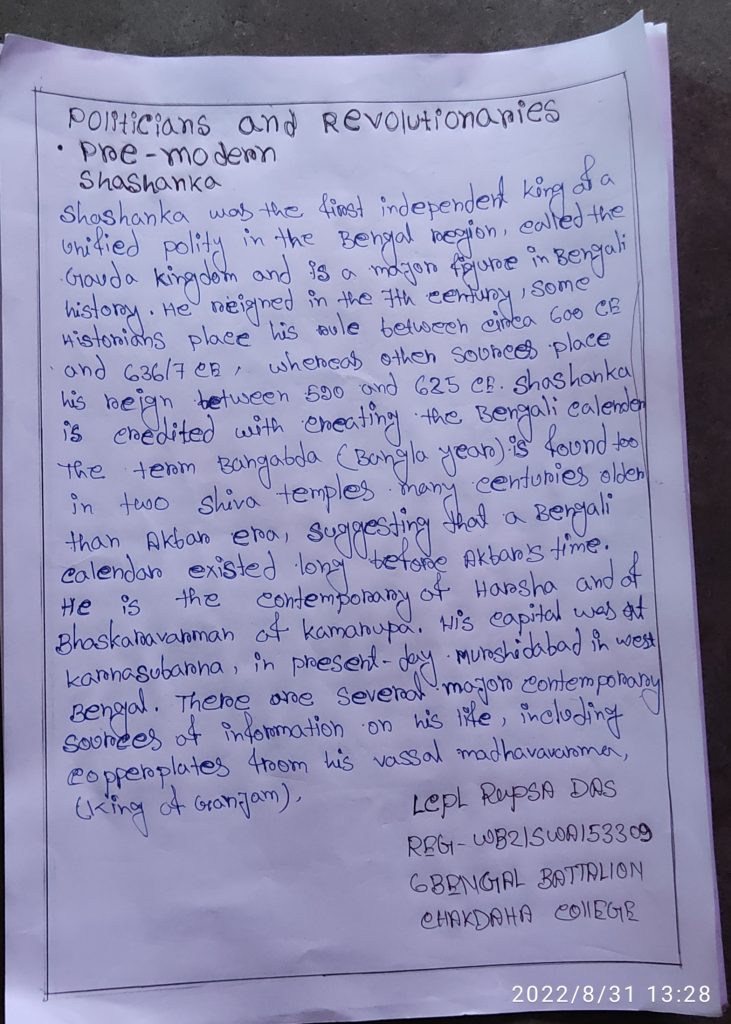 Politicians and Revolutionaries
• Pre-modern
Shashanka
Shashanka was the first independent king of a
unified polity in the Bengal region, called the
Gauda kingdom and is a major figure in Bengali
history. He reigned in the 7th century, some
Historians place his rule between circa 600 CE
and 636/7 CE, whereas other sources place
his reign between 590 and 625 CE. Shashanka
is credited with creating the Bengali calender
The term Bangabda (Bangla year) is found too
in two Shiva temples many centuries older
than Akbar era, suggesting that a Bengali
calendar existed long before Akbar's time.
He is the contemporary of Harsha and of
Bhaskaravarman of Kamarupa. His capital was at
Karnasubarna, in present-day Murshidabad in west
Bengal. There are several major contemporary
sources of information on his life, including
copperplates from his vassal madhavavarmen,
(King of Ganjam),
Lcpl Rupsa Das
REG-WB21SWA153309
6 BENGAL BATTALION
CHAKDAHA COllEGE
2022/8/31 13:28